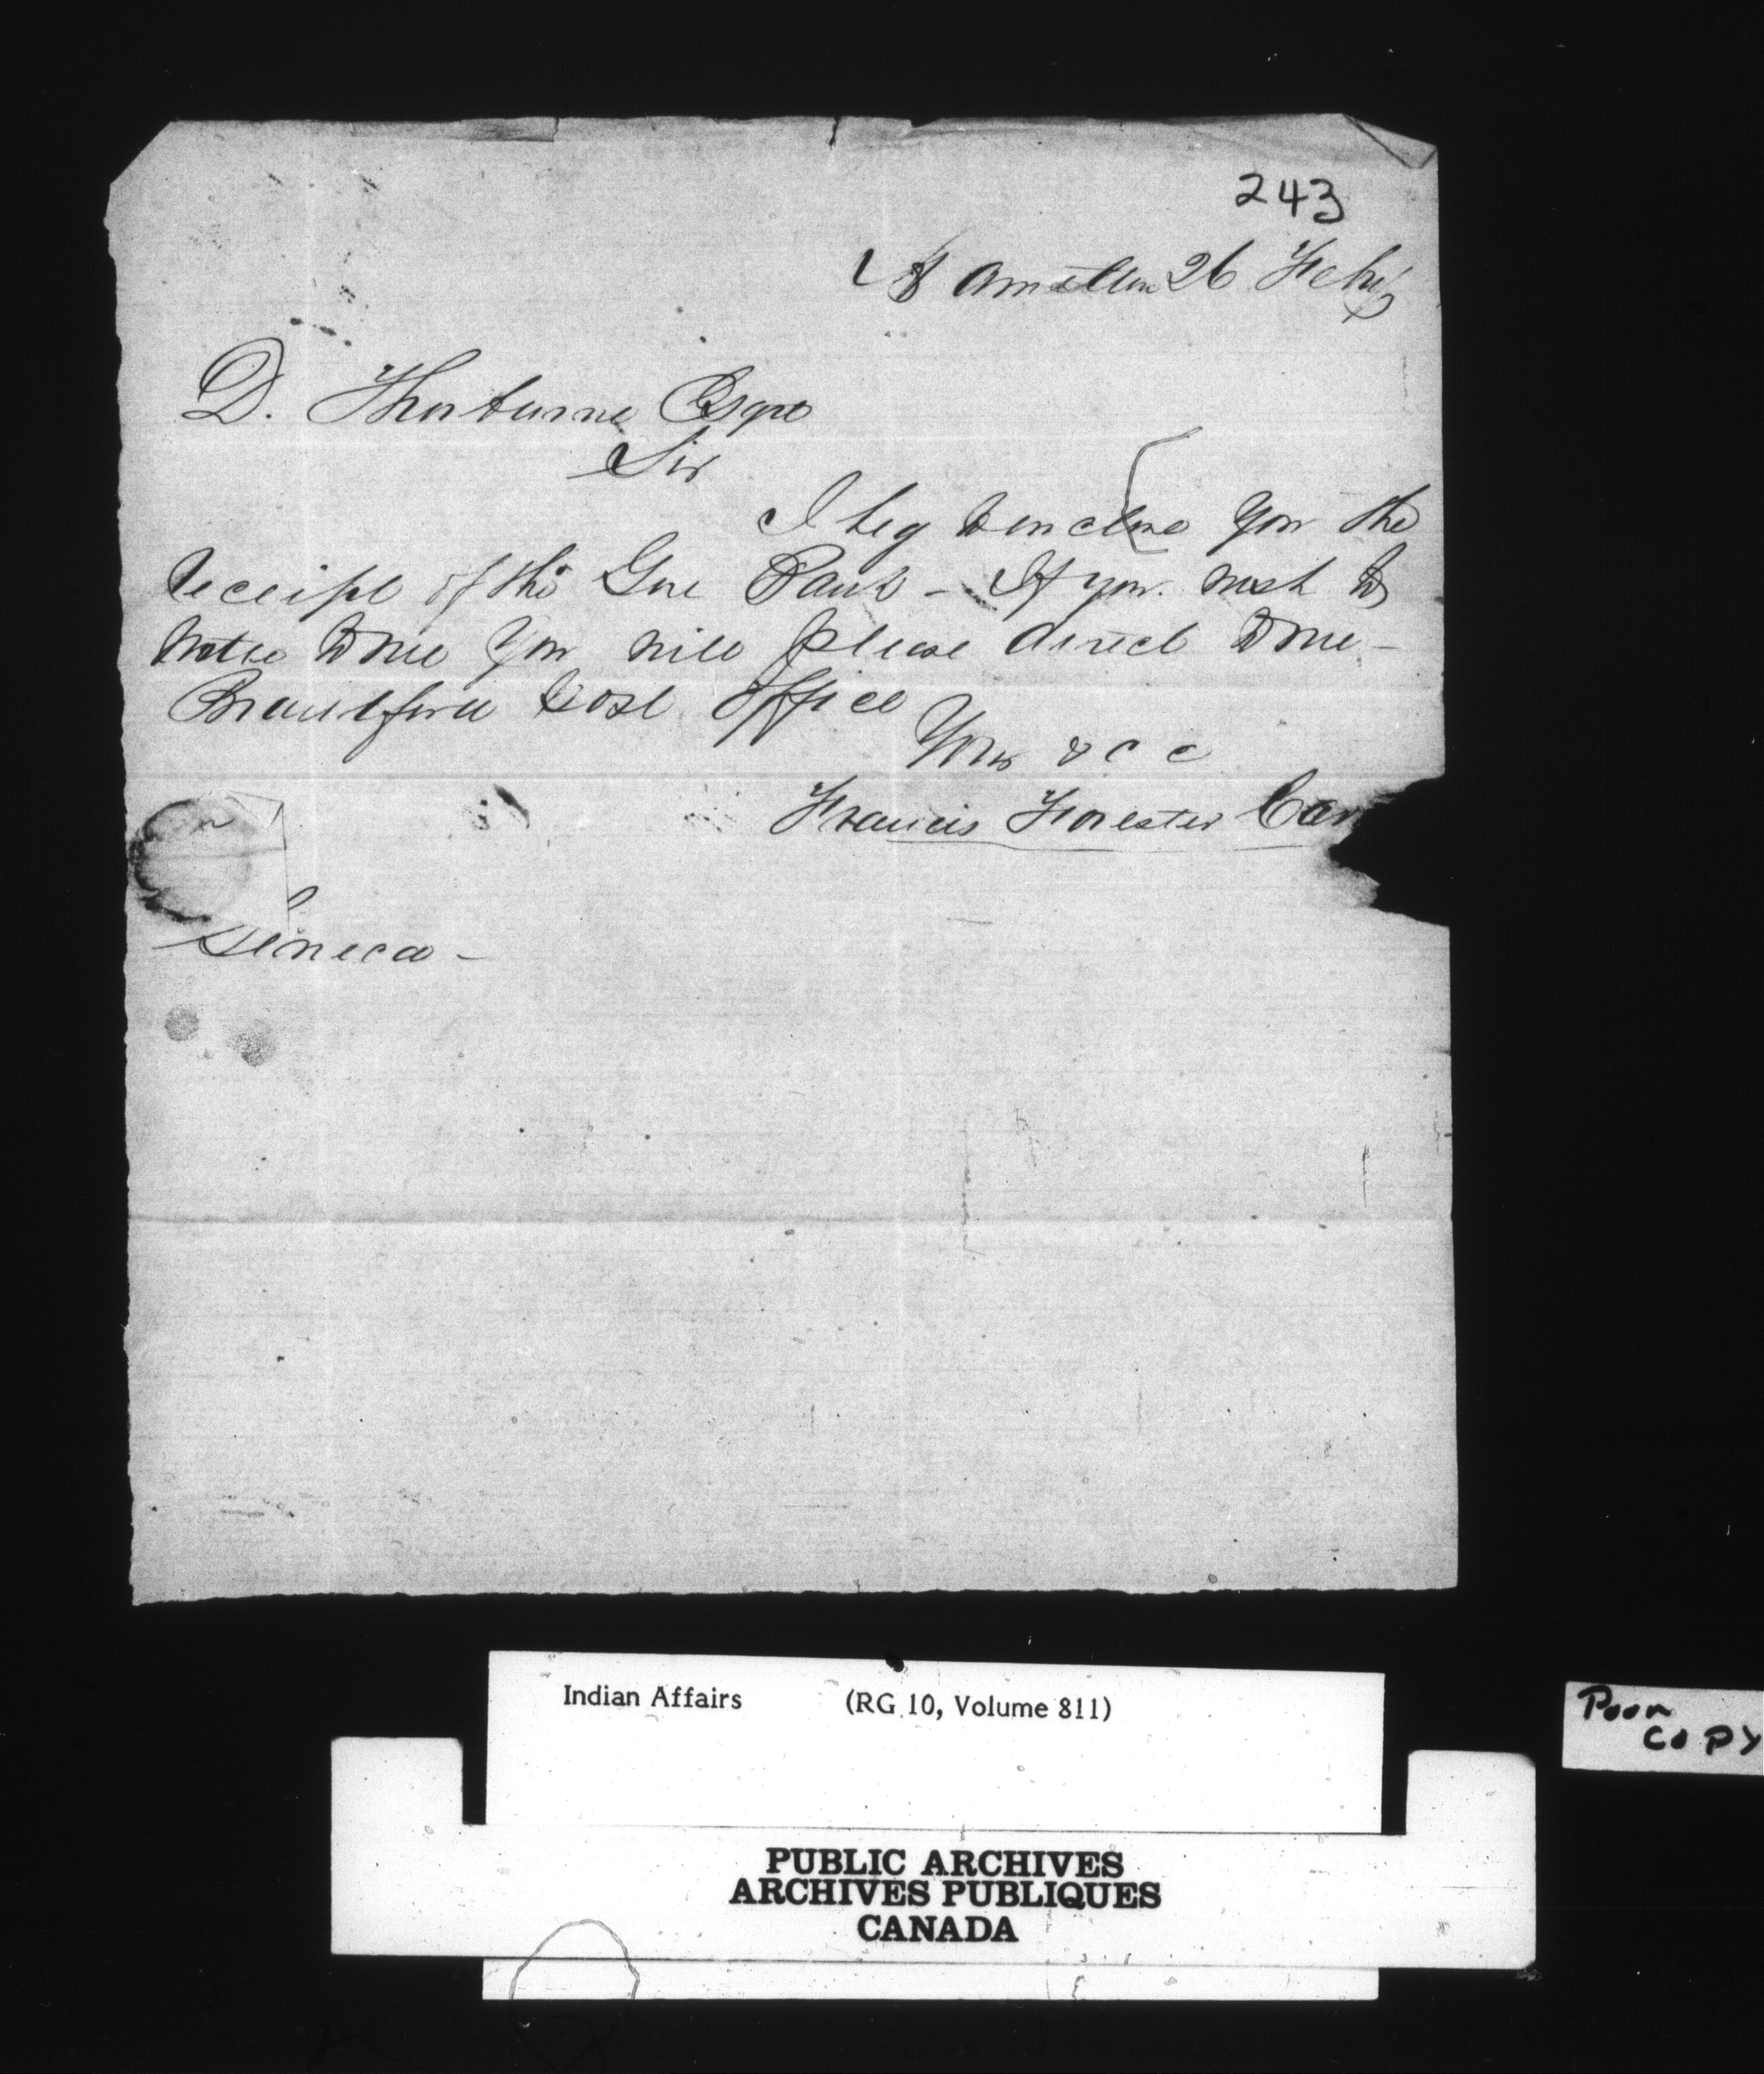 243
Hamilton 26 Feby
D. Thorburne Esqre
Sir
I beg to enclose you the
receipt of the Gore Bank - If you wish to
write to me you will please direct to me -
Brantford Post Office
Yours &c c
Francis Forester Car
Seneca -
Indian Affairs (RG 10, Volume 811)
Poor
COPY
PUBLIC ARCHIVES
ARCHIVES PUBLIQUES
CANADA